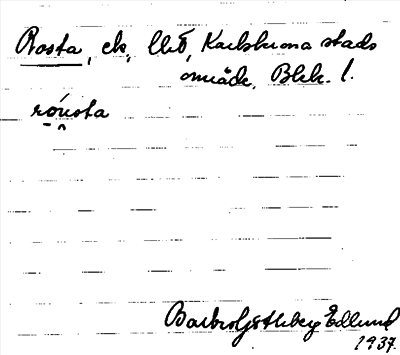 Rosta, ek, Utö, Karlskrona stads
område, Blek. l.
rósta
Barbro Götheby Edlund
1937.